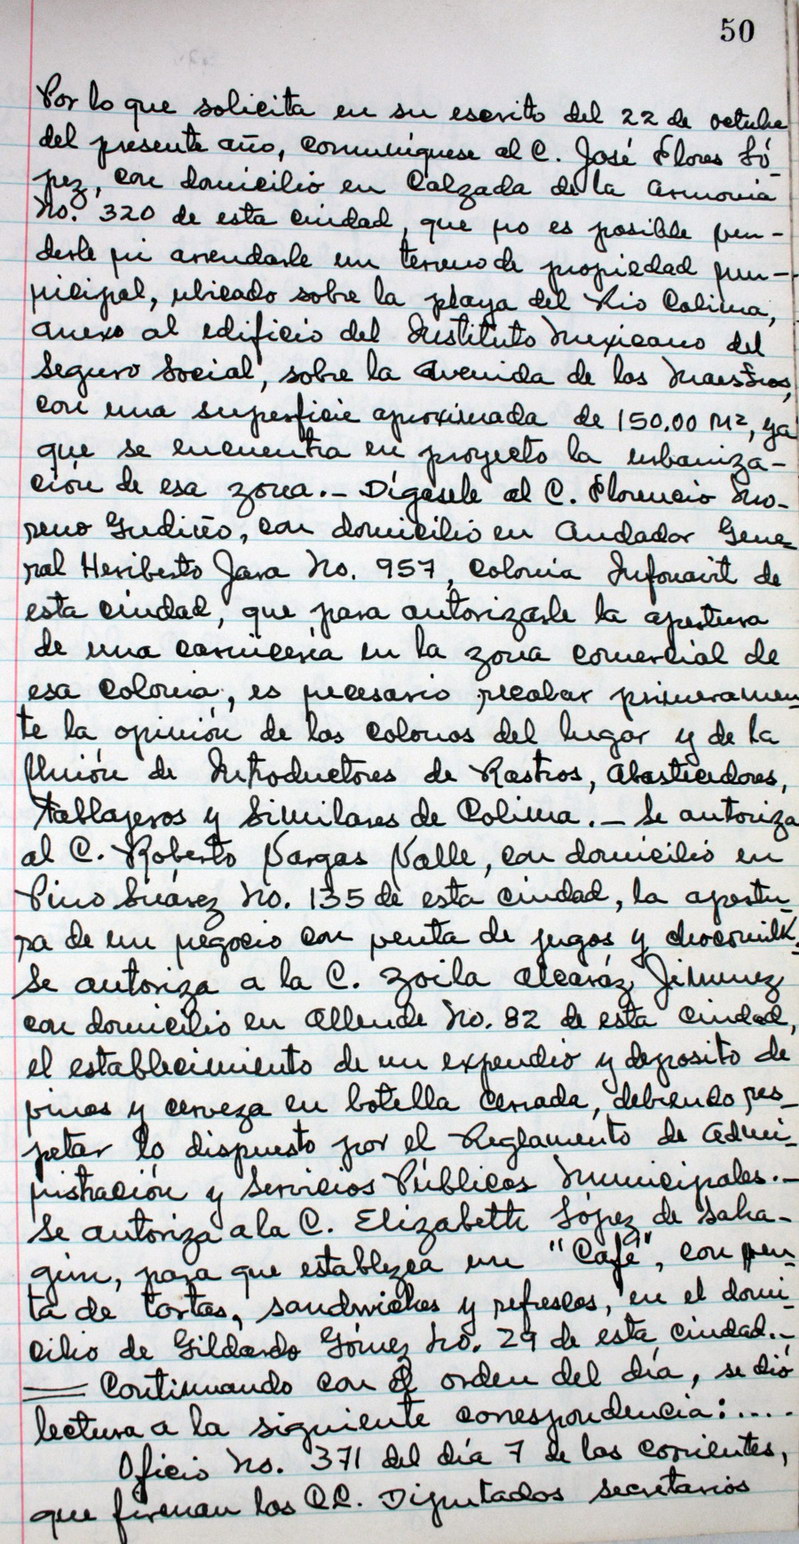 50
Por lo que solicita en su escrito del 22 de octubre
del presente año, comuníquese al C. José Flores Ló-
pez, con domicilio en Calzada de la Armonía
No. 320 de esta ciudad, que no es posible ven-
derle ni arrendarle un terreno de propiedad mu-
nicipal, ubicado sobre la playa del Rio Colima,
anexo al edificio del Instituto Mexicano del
Seguro Social, sobre la Avenida de los Maestros,
con una superficie aproximada de 150.00 M2, ya
que se encuentra en proyecto la urbaniza-
ción de esa zona.- Dígasele al C. Florencio Mo-
reno Gudiño, con domicilio en Andador Gene
ral Heriberto Jara No. 957, Colonia Infonavit de
esta ciudad, que para autorizarle la apertura
de una carnicería en la zona comercial de
esa colonia, es necesario recabar primeramen
te la opinión de los colonos del lugar y de la
Unión de Introductores de Rastros, Abastecedores,
Tablajeros y Similares de Colima.- Se autoriza
al C. Roberto Vargas Valle, con domicilio en
Pino Suárez No. 135 de esta ciudad, la apertu-
ra de un negocio con venta de jugos y chocomilk.
Se autoriza a la C. Zoila Alcaráz Jimenez
con domicilio en Allende No. 82 de esta ciudad,
el establecimiento de un expendio y deposito de
vinos y cerveza en botella cerrada, debiendo res-
petar lo dispuesto por el Reglamento de Admi-
nistración y Servicios Públicos Municipales.-
Se autoriza a la C. Elizabeth López de Saha-
gún, para que establezca un "Café", con ven
ta de tortas, sandwiches y refrescos, en el domi-
cilio de Gildardo Gómez No. 29 de esta ciudad.-
== Continuando con el orden del día, se dió
lectura a la siguiente correspondencia:....
Oficio No. 371 del día 7 de los corrientes,
que firman los CC. Diputados secretarios